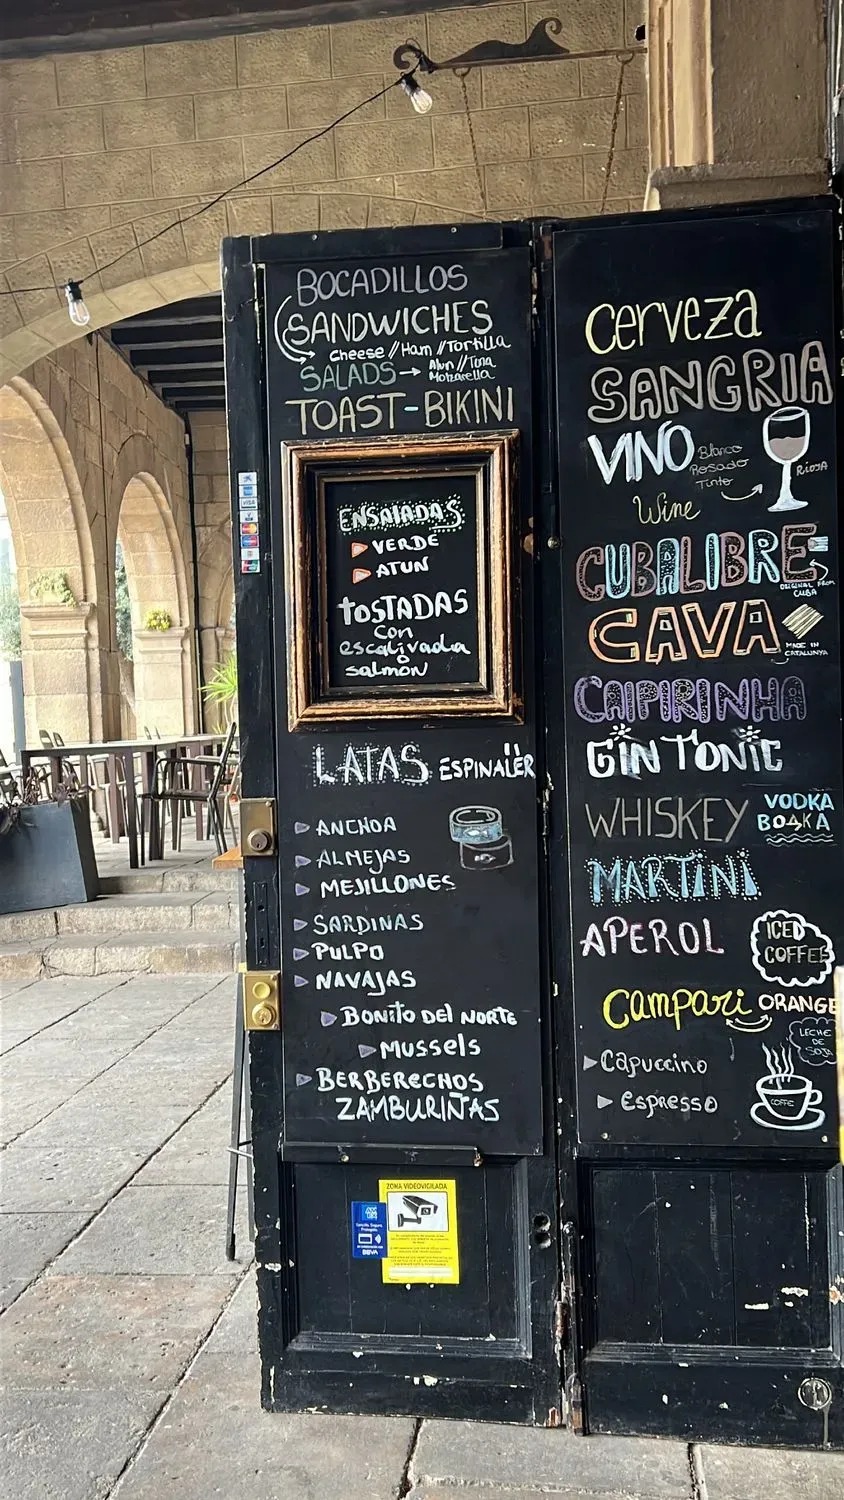 BOCADILLOS
SANDWICHES
cheese // Ham // Tortilla
SALADS → Atun // Tuna
Motzarella
TOAST-BIKINI
ENSALADAS
VERDE
ATUN
TOSTADAS
con
escalivada
o
salmón
LATAS ESPINALER
ANCHOA
ALMEJAS
MEJILLONES
SARDINAS
PULPO
NAVAJAS
BONITO DEL NORTE
MUSSELS
BERBERECHOS
ZAMBURIÑAS
ZONA VIDEOVIGILADA
BBVA
Cerveza
SANGRIA
VINO
Blanco
Rosado
Tinto
RIOJA
Wine
CUBALIBRE
ORIGINAL FROM
CUBA
CAVA
MADE IN
CATALUNYA
CAIPIRINHA
GIN TONIC
WHISKEY
VODKA
BOAKA
MARTINI
APEROL
ICED
COFFEE
Campari ORANGE
LECHE
DE
SOJA
Capuccino
Espresso
COFFE